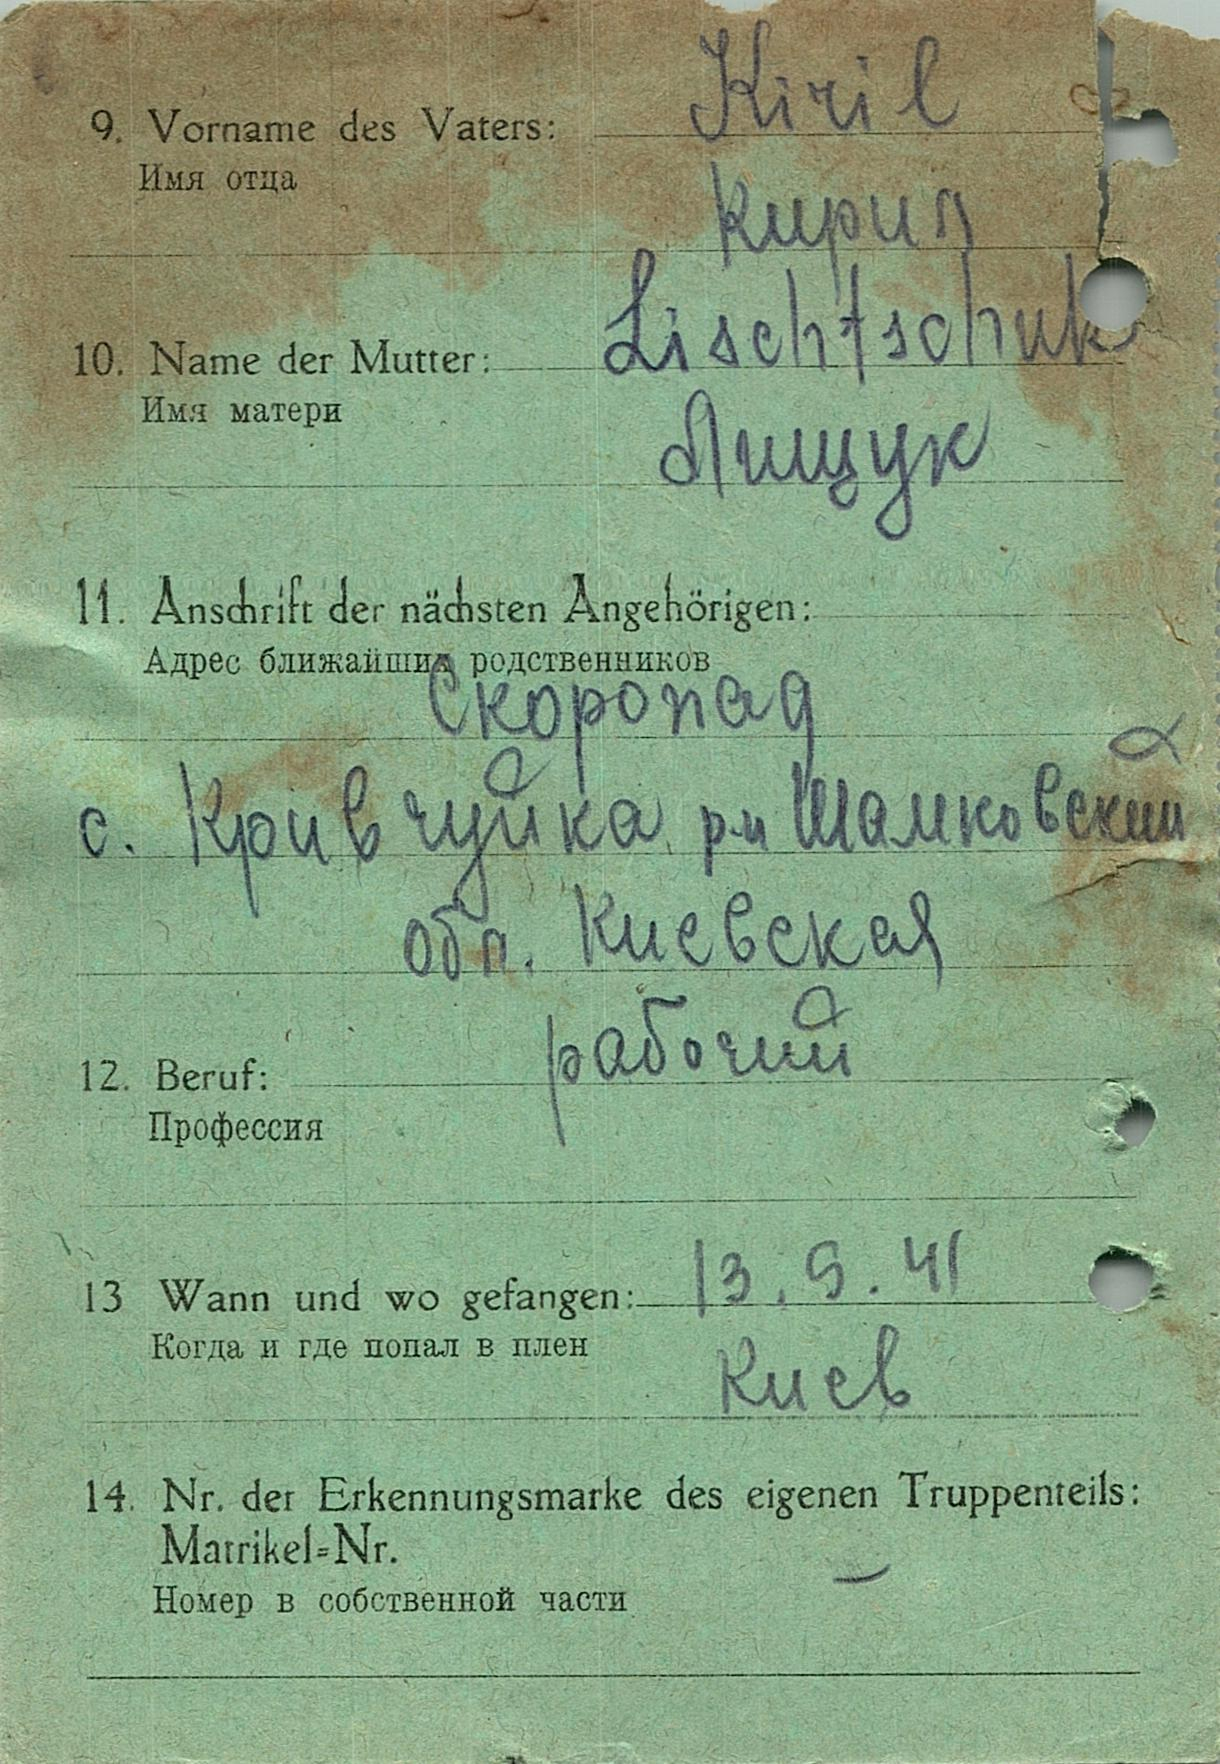 9. Vorname des Vaters: Kiril
Имя отца
Кирил
10. Name der Mutter: Lischtschuk
Имя матери
Лищук
11. Anschrift der nächsten Angehörigen:
Адрес ближайших родственников
Скоропад
с. Кривчуйка рн Шамковский
обл. Киевская
12. Beruf: рабочий
Профессия
13 Wann und wo gefangen: 13.9.41
Когда и где попал в плен
Киев
14. Nr. der Erkennungsmarke des eigenen Truppenteils:
Matrikel=Nr.
Номер в собственной части –